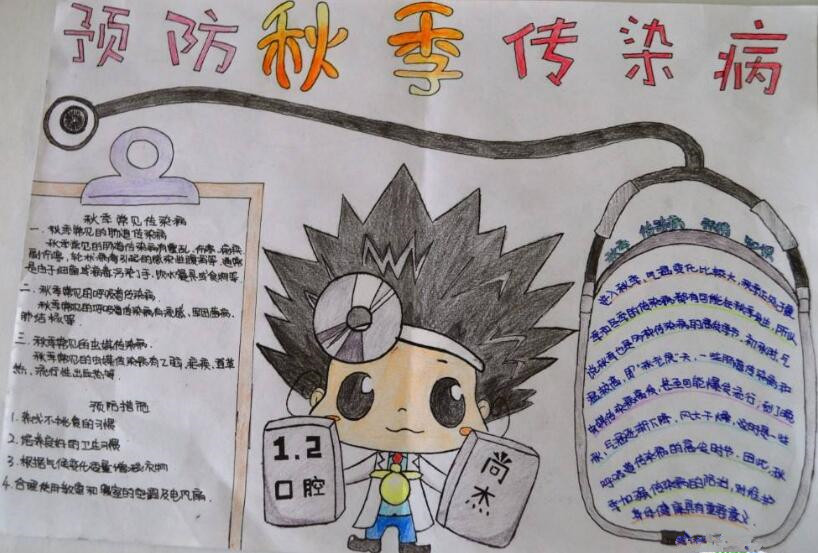 预防秋季传染病
秋季常见传染病
一、秋季常见的肠道传染病
秋季常见的肠道传染病有霍乱、伤寒、
副伤寒、轮状病毒引起的感染性腹泻等
是由于细菌或病毒污染了手、饮水餐具或食物等。
二、秋季常见的呼吸道传染病
秋季常见的呼吸道传染病有流感、
肺结核等。
三、秋季常见的虫媒传染病
秋季常见的虫媒传染病有乙脑、疟疾、登革
热、流行性出血热等。
预防措施
1.养成不挑食的习惯
2.培养良好的卫生习惯
3.根据气候变化适量增减衣物
4.合理使用教室和寝室的空调及电风扇。
1.2
口腔
尚
杰
秋季 传染病 预防 知识
进入秋季,气温变化比较大,秋季正处于夏
季和冬季的传染病都有可能在秋季发生,所以
说秋季也是多种传染病的高发季节。初秋,气
温较高,因"秋老虎"大,一些肠道传染病和
虫媒传染病高发,甚至可能爆发流行;到了晚
秋,气温逐渐下降,风大干燥,这时是一些
呼吸道传染病的高发时节。因此,秋
季加强传染病的防治,对维护
身体健康具有重要意义。